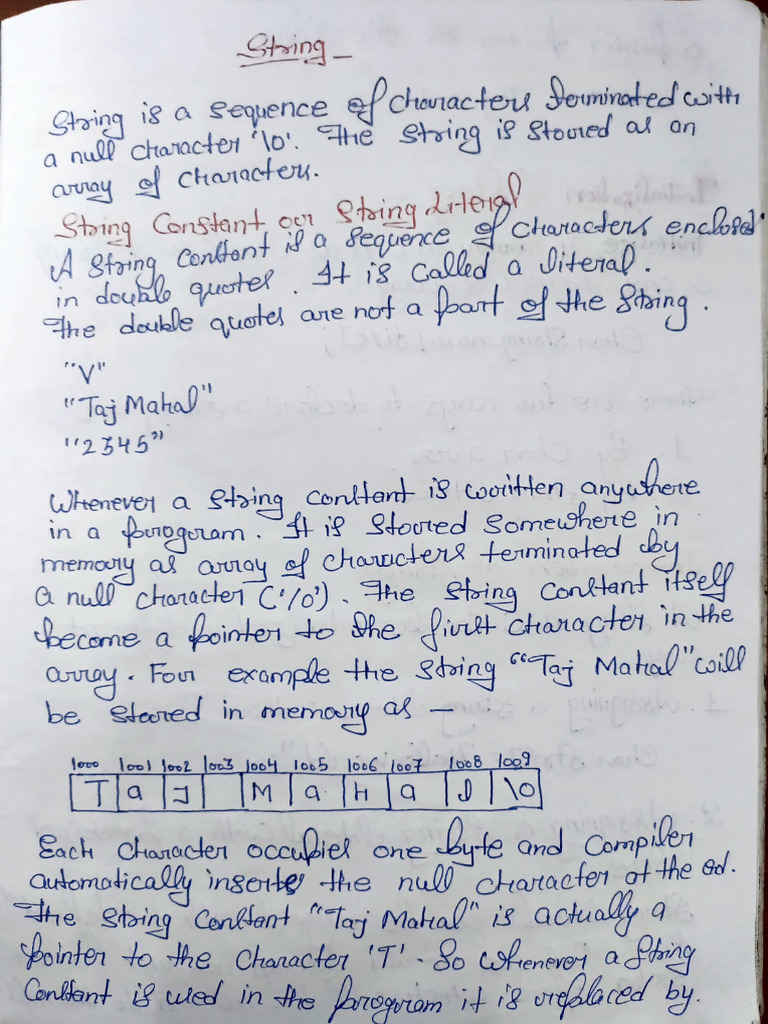 String
String is a sequence of characters terminated with
a null character '\0'. The string is stored as an
array of characters.
String Constant or String Literal
A string constant is a sequence of characters enclosed
in double quotes. It is called a literal.
The double quotes are not a part of the string.
"V"
"Taj Mahal"
"2345"
Whenever a string constant is written anywhere
in a program. It is stored somewhere in
memory as array of characters terminated by
a null character ('/0'). The string constant itself
become a pointer to the first character in the
array. For example the string "Taj Mahal" will
be stored in memory as —
1000 1001 1002 1003 1004 1005 1006 1007 1008 1009
T a J M a h a l \0
Each character occupies one byte and compiler
automatically inserts the null character at the ed.
The string constant "Taj Mahal" is actually a
pointer to the character 'T'. So whenever a string
constant is used in the program it is replaced by.